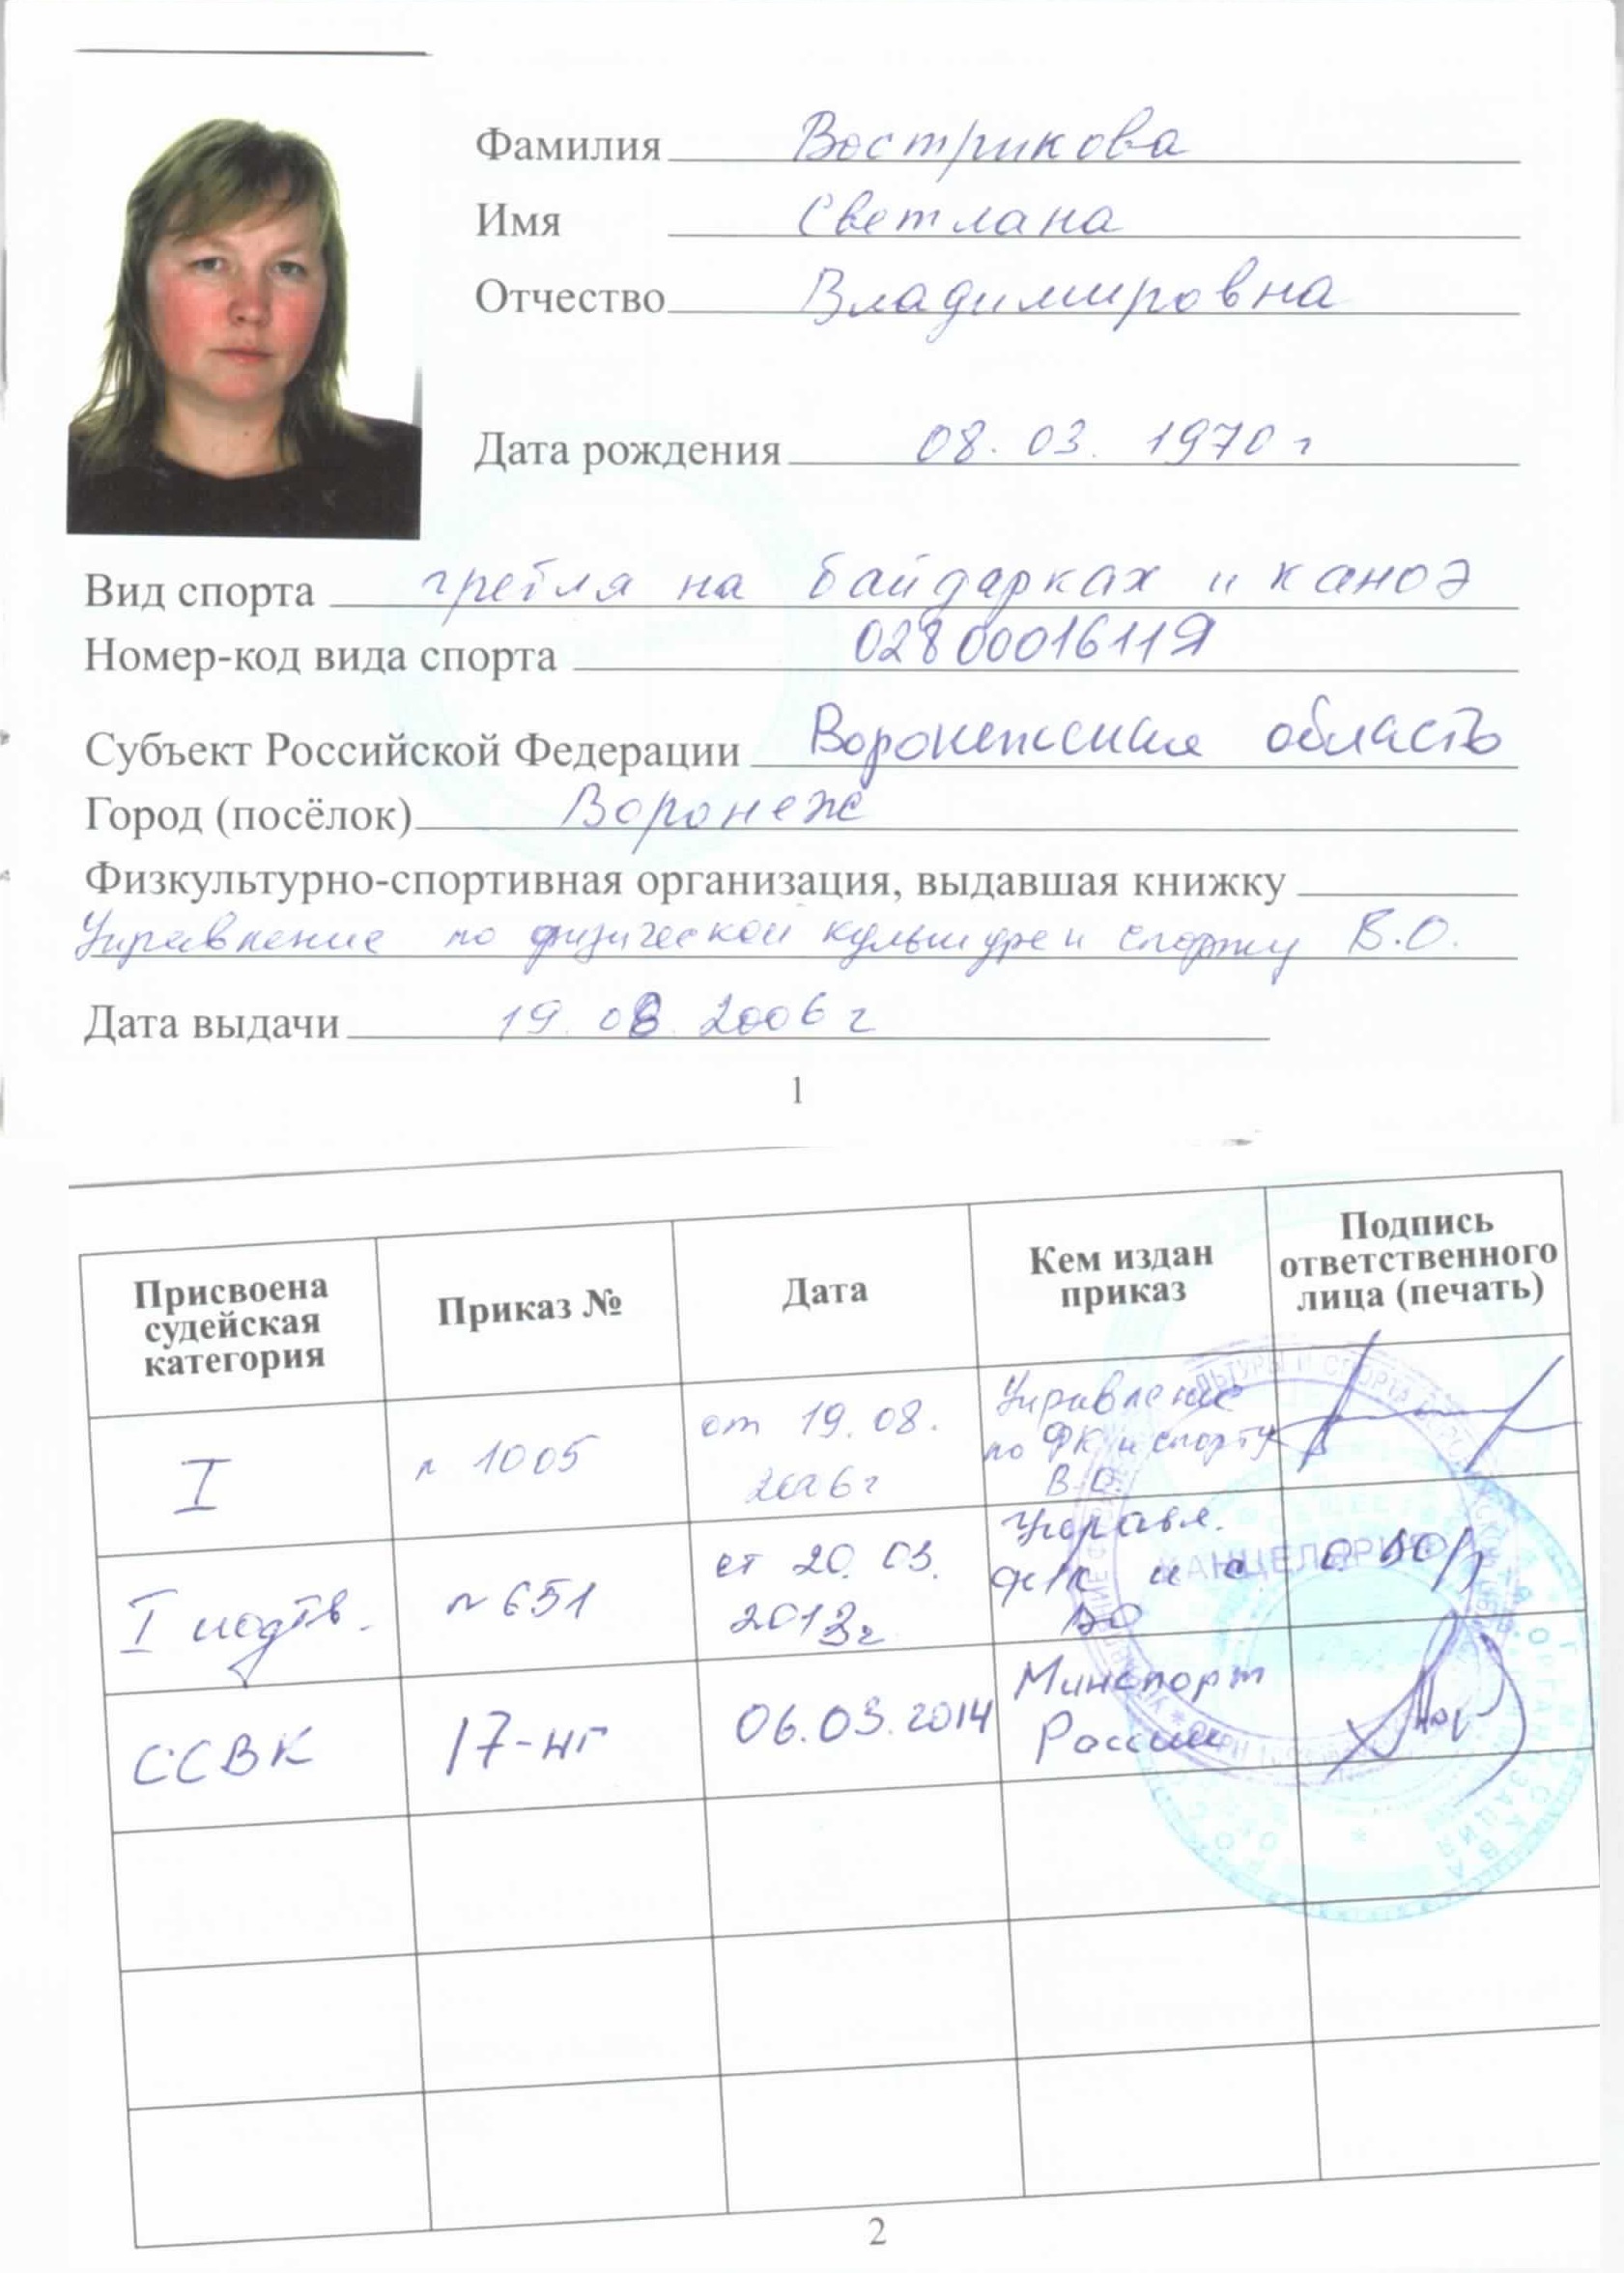 Фамилия Вострикова
Имя Светлана
Отчество Владимировна
Дата рождения 08.03.1970 г
Вид спорта гребля на байдарках и каноэ
Номер-код вида спорта 02800016119
Субъект Российской Федерации Воронежская область
Город (посёлок) Воронеж
Физкультурно-спортивная организация, выдавшая книжку
Управление по физической культуре и спорту В.О.
Дата выдачи 19.08.2006 г
1
Присвоена судейская категория
Приказ №
Дата
Кем издан приказ
Подпись ответственного лица (печать)
I
n 1005
от 19.08.
2006 г
Управление
по ФК и спорту
В.О.
I подтв.
n 651
от 20.03.
2013 г
Управл.
ф/к и с
ВО
КАНЦЕЛЯРИЯ
ССВК
17-нг
06.03.2014
Минспорт
России
2